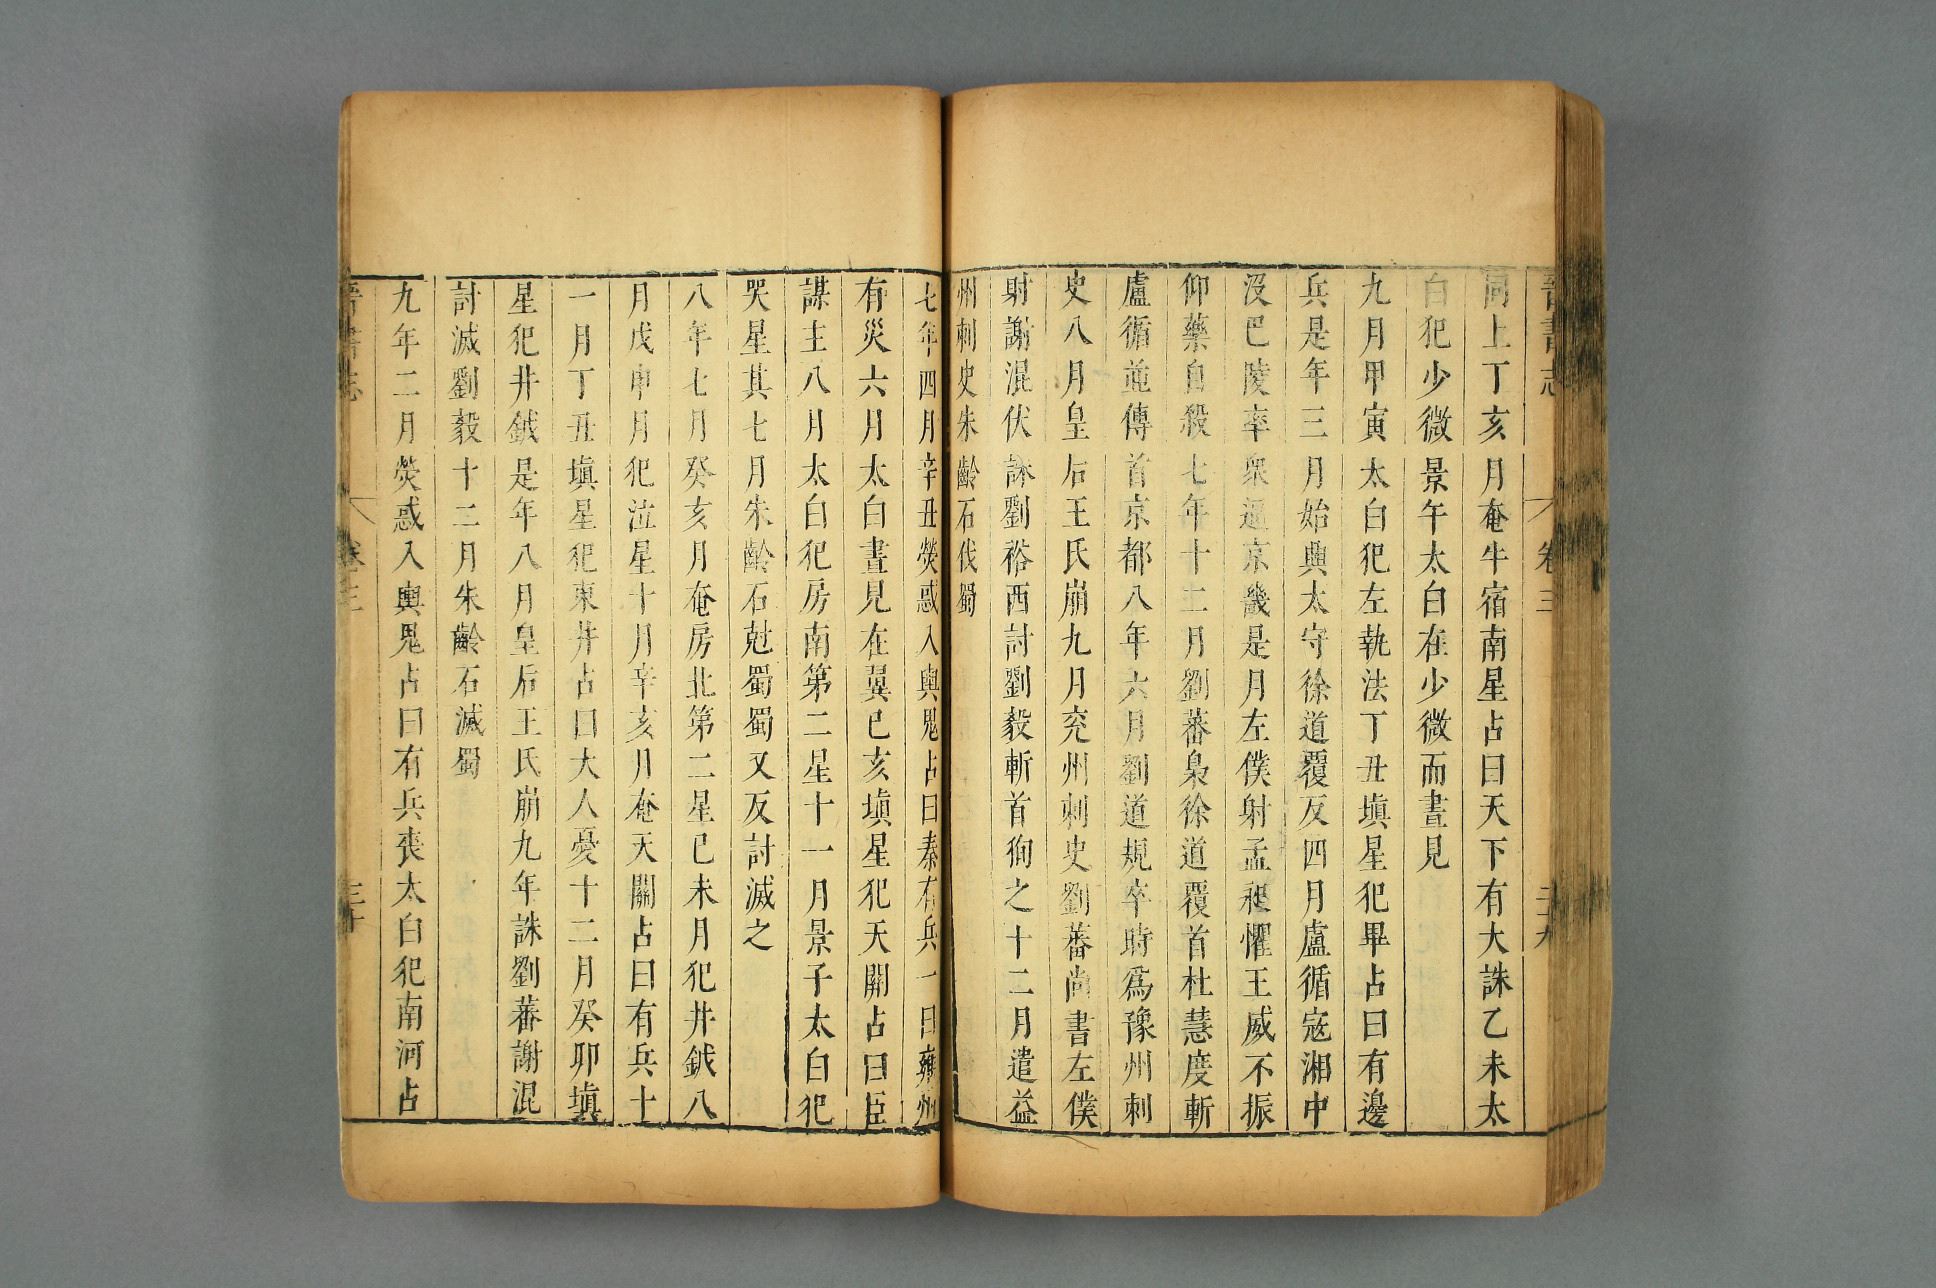 晉書志 卷三 二十九
同上丁亥月奄牛宿南星占曰天下有大誅乙未太
白犯少微景午太白在少微而晝見
九月甲寅太白犯左執法丁丑塡星犯畢占曰有邊
兵是年三月始興太守徐道覆反四月盧循寇湘中
沒巴陵率衆逼京畿是月左僕射孟昶懼王威不振
仰藥自殺七年十二月劉蕃梟徐道覆首杜慧度斬
盧循並傳首京都八年六月劉道規卒時爲豫州刺
史八月皇后王氏崩九月兖州刺史劉蕃尚書左僕
射謝混伏誅劉裕西討劉毅斬首徇之十二月遣益
州刺史朱齡石伐蜀
七年四月辛丑熒惑入輿鬼占曰秦有兵一曰雍州
有災六月太白晝見在翼己亥塡星犯天關占曰臣
謀主八月太白犯房南第二星十一月景子太白犯
哭星其七月朱齡石尅蜀蜀又反討滅之
八年七月癸亥月奄房北第二星己未月犯井鉞八
月戊申月犯泣星十月辛亥月奄天關占曰有兵十
一月丁丑塡星犯東井占曰大人憂十二月癸卯塡
星犯井鉞是年八月皇后王氏崩九年誅劉蕃謝混
討滅劉毅十二月朱齡石滅蜀
九年二月熒惑入輿鬼占曰有兵喪太白犯南河占
晉書志 卷三 三十